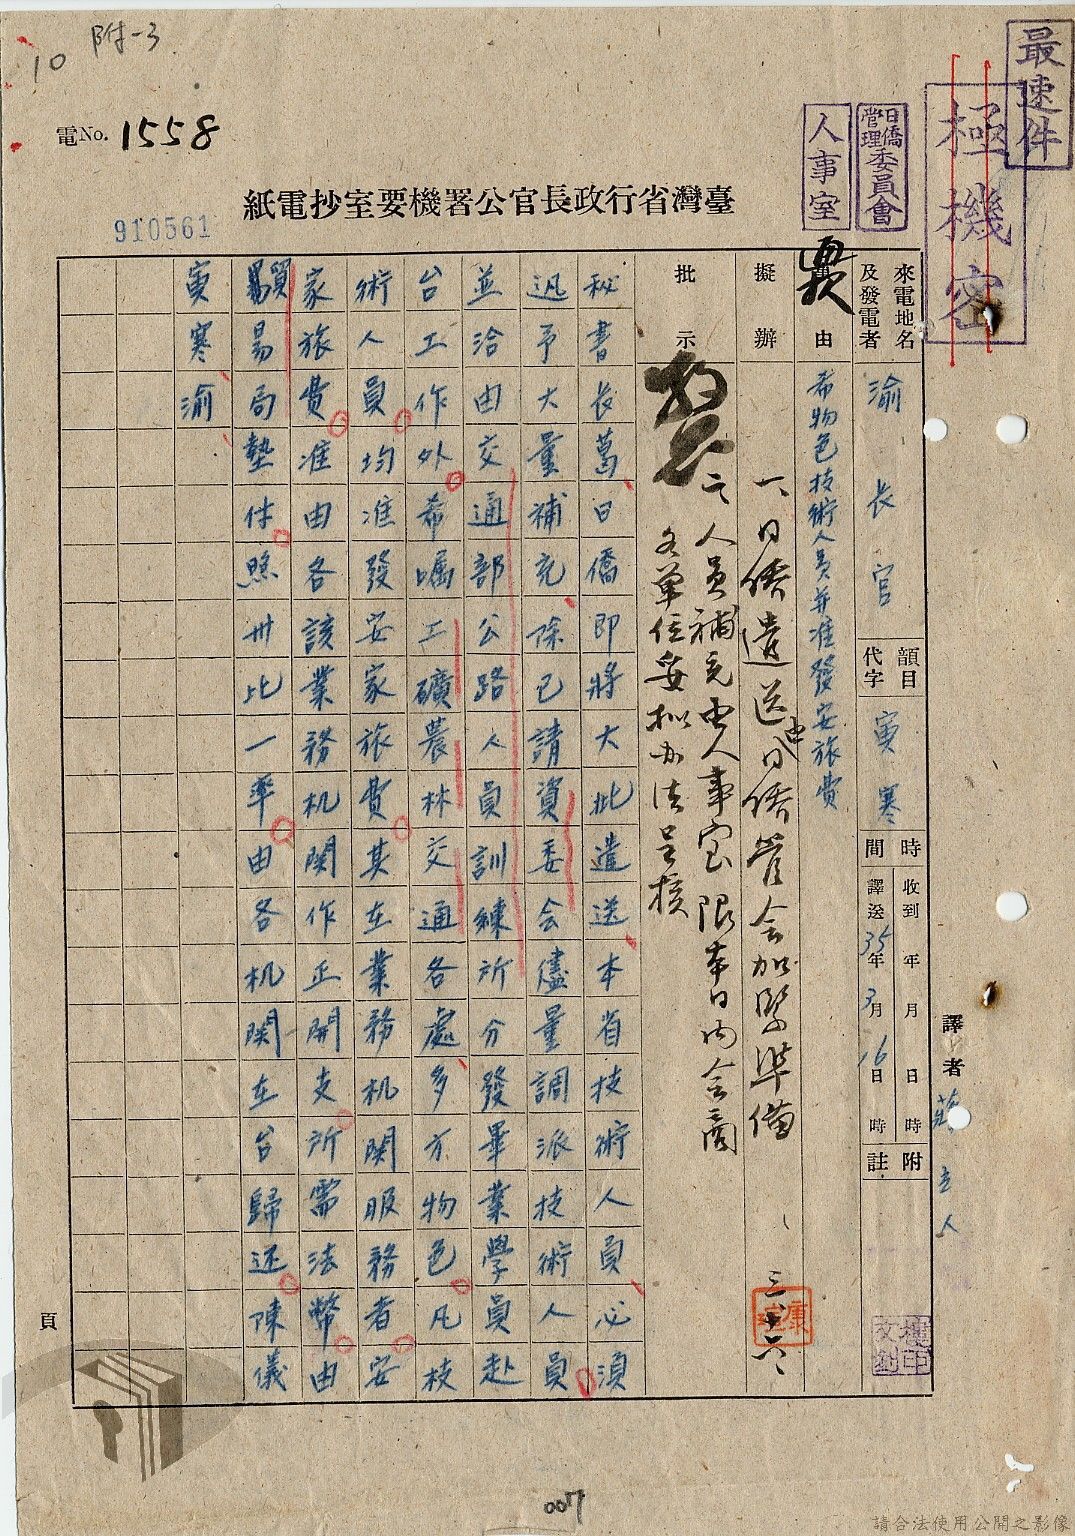 附-3
10
電No. 1558
最速件
極機密
日僑管理委員會
人事室
臺灣省行政長官公署機要室抄電紙
910561
來電地名及發電者
渝 長官
韻目代字
寅寒
時間
收到 年 月 日 時
譯送 35年 3月 16日 時
附註
譯者
由
希物色技術人員并准發安旅費
擬辦
一、日僑遣送由日僑管會加緊準備
二、人員補充由人事室限本日內會商
各單位妥拟办法呈核
三、十六、
批示
秘書長葛日僑即將大批遣送本省技術人員必須
迅予大量補充除已請資委会儘量調派技術人員
並洽由交通部公路人員訓練所分發畢業學員赴
台工作外希囑工礦農林交通各處多方物色凡技
術人員均准發安家旅費其在業務机関服務者安
家旅費准由各該業務机関作正開支所需法幣由
貿易局墊付照卅比一率由各机関在台歸还陳儀
寅寒渝
頁
007
請合法使用公開之影像